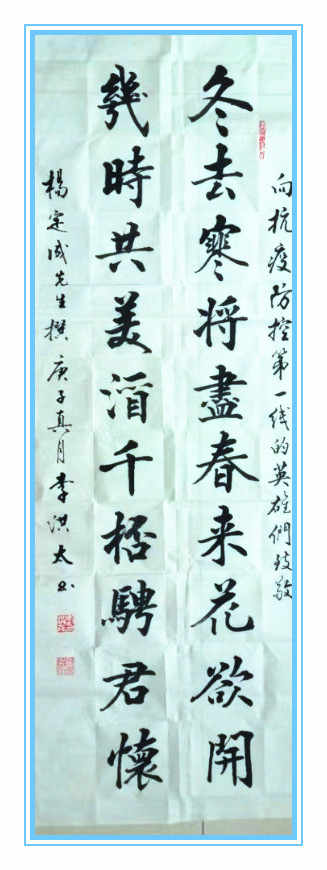 向抗疫防控第一线的英雄們致敬
冬去寒将盡春来花欲開
幾時共美酒千桮騁君懷
楊定成先生撰 庚子真月李洪太书